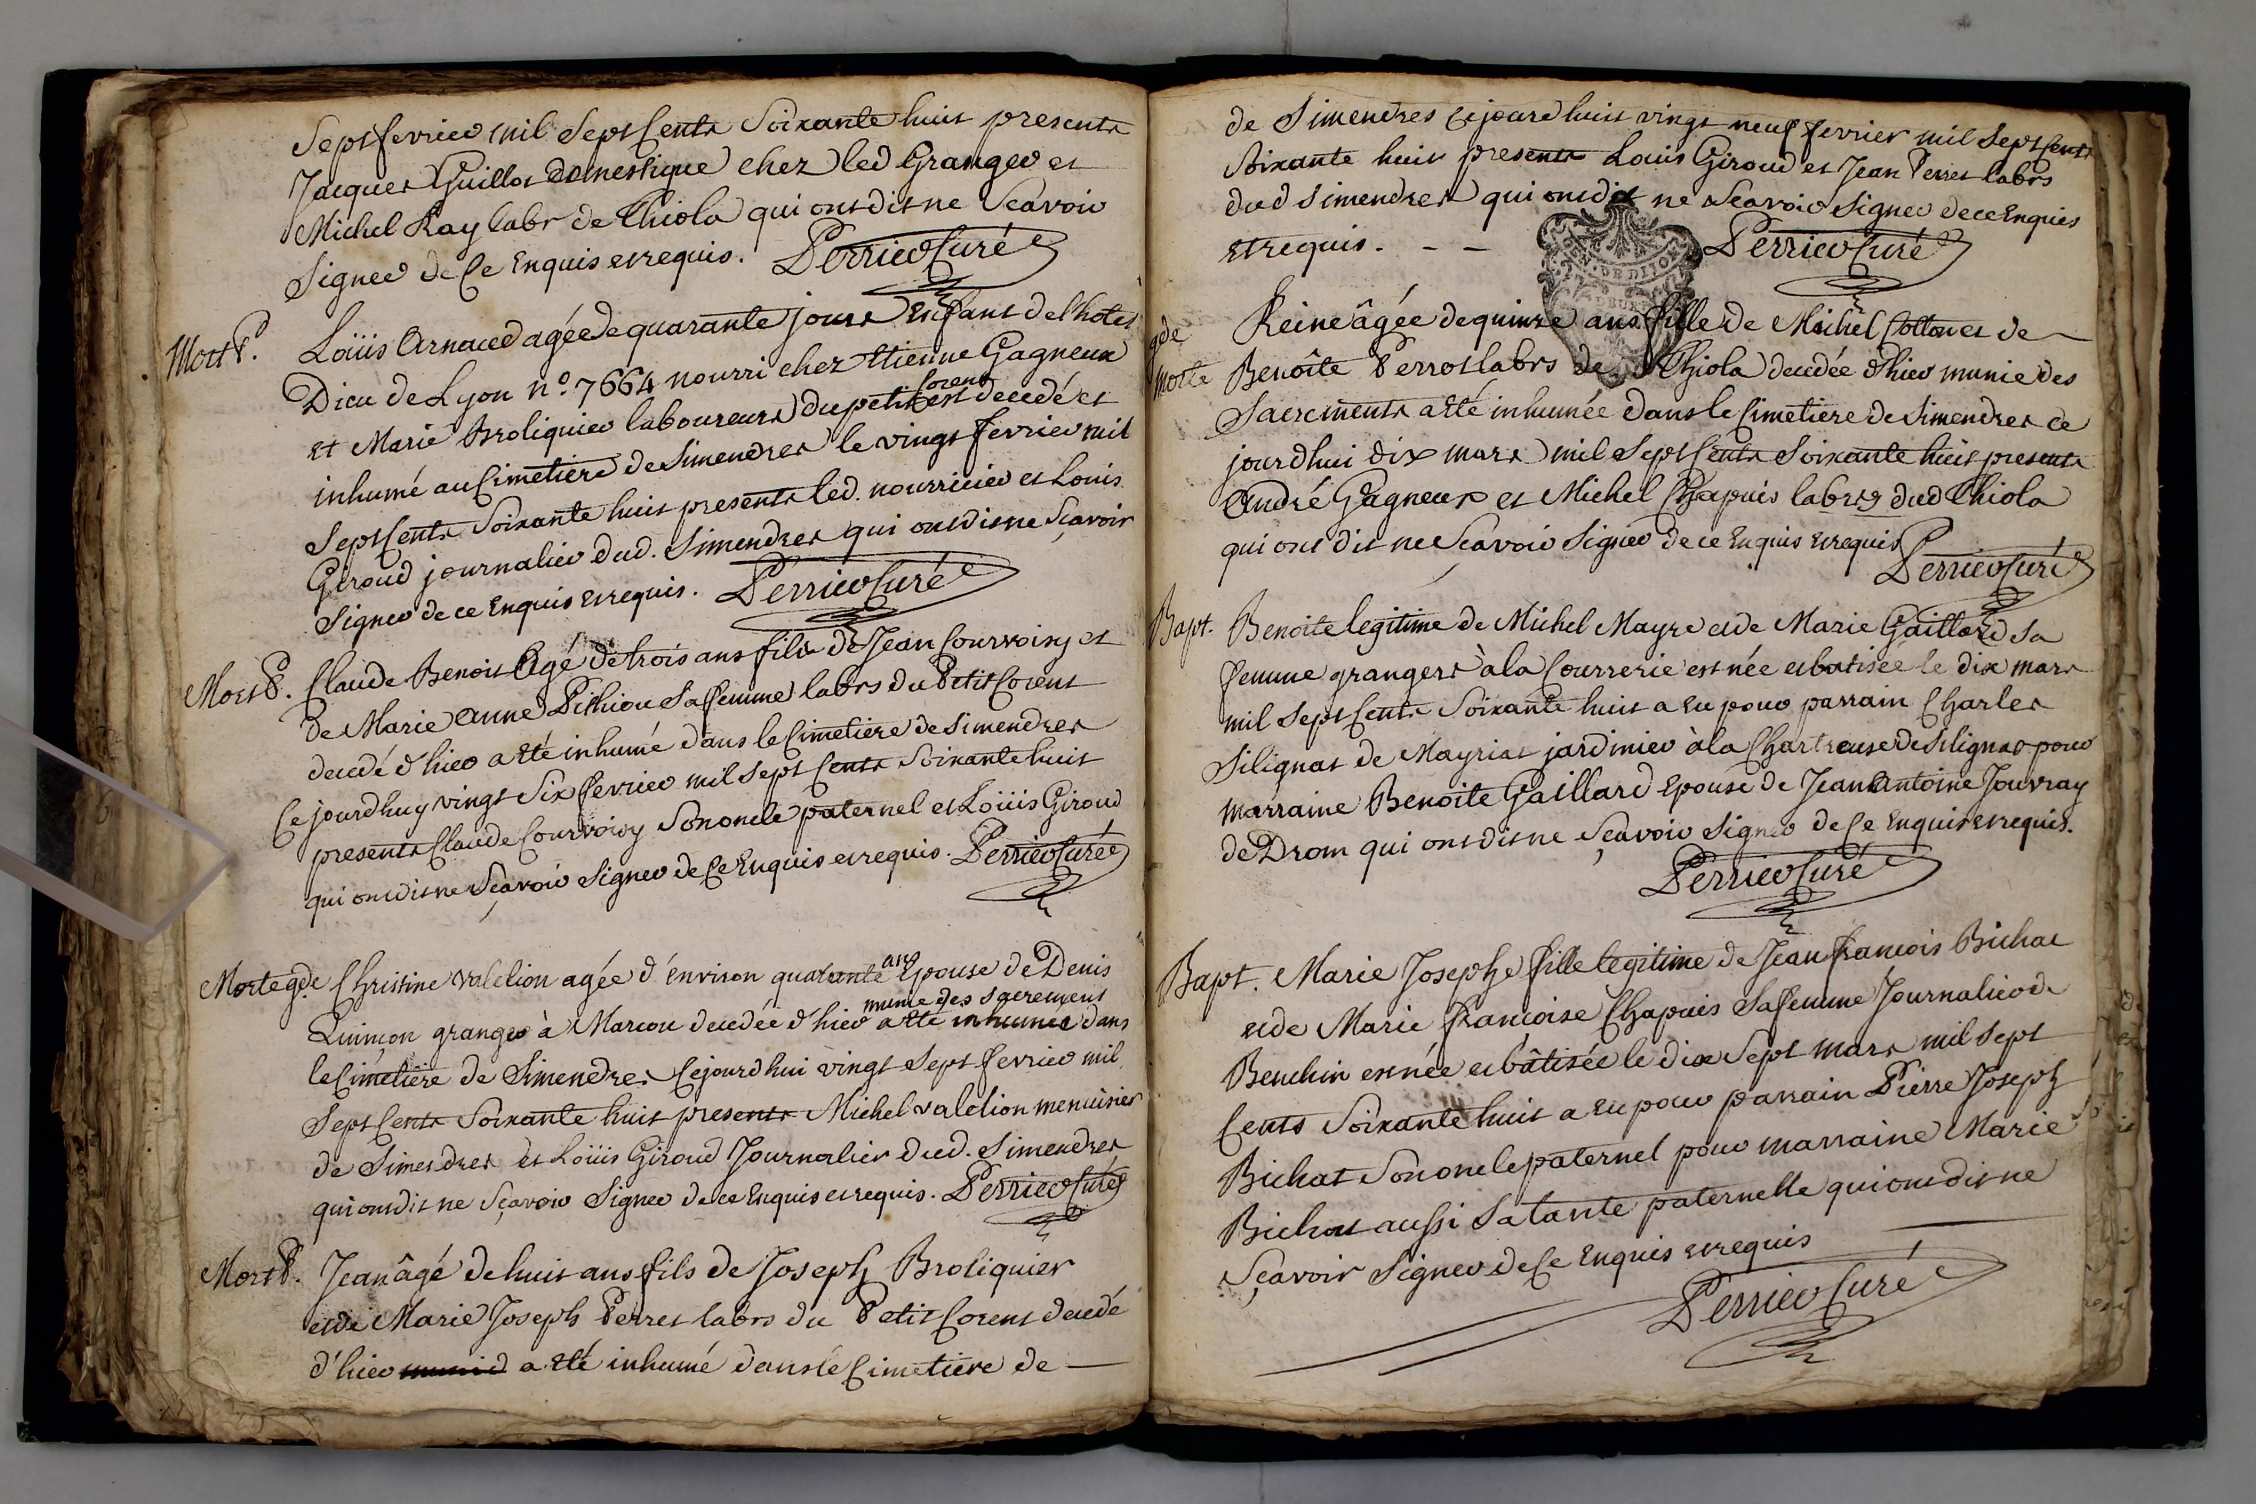 Sept fevrier mil Sept Cents Soixante huit presents
Jacques Guillot domestique chez led Granger et
Michel Ray labr de Chiola qui ont dit ne Scavoir
Signer de Ce Enquis et requis. Perrier Curé
Mort P. Loüis Arnaud agée de quarante jours Enfant de l'hotel
Dieu de Lyon n.° 7664 nourri chez Etienne Gagneux
et Marie Broliquier laboureurs du petit Corent est decedé et
inhumé au Cimetière de Simendres le vingt fevrier mil
Sept Cents Soixante huit presents led. nourricier et Louis
Giroud journalier dud. Simendres qui ont dit ne Sçavoir
Signer de ce Enquis et requis. Perrier Curé
Mort P. Claude Benoit Agé de trois ans fils de Jean Courvoisy et
de Marie Anne Pithiou Sa femme labrs du Petit Corent
decedé d'hier a Eté inhumé dans le Cimetiere de Simendres
Ce jourdhuy vingt Six fevrier mil Sept Cents Soixante huit
presents Claude Courvoisy Son oncle paternel et Loüis Giroud
qui ont dit ne Sçavoir Signer de Ce Enquis et requis. Perrier Curé
Morte gde Christine Valelion agée d'environ quarante ans Epouse de Denis
Quinson granger à Marcou decedée d'hier munie des Sacrements a Eté inhumée dans
le Cimetière de Simendres Cejourdhui vingt Sept fevrier mil
Sept Cents Soixante huit presents Michel Valelion menuisier
de Simendres et Loüis Giroud Journalier dud. Simendres
qui ont dit ne Sçavoir Signer de ce Enquis et requis. Perrier Curé
Mort P. Jean âgé de huit ans fils de Joseph Broliquier
et de Marie Joseph Perret labrs du Petit Corent decedé
d'hier munid a Eté inhumé dans le Cimetiere de
de Simendres Cejourdhuit vingt neuf fevrier mil Sept Cents
Soixante huit presents Loüis Giroud et Jean Perret labrs
dud Simendres qui ont dit ne Scavoir Signer de ce Enquis
et requis. - - Perrier Curé
GEN. DE DIJON
gde morte Reine âgée de quinze ans fille de Michel Cotton et de
Benoîte Perrot labrs de Chiola decedée d'hier munie des
Sacrements a Eté inhumée dans le Cimetiere de Simendres ce
jourdhui dix mars mil Sept Cents Soixante huit presents
André Gagneux et Michel Chapuis labrs dud Chiola
qui ont dit ne Scavoir Signer de ce Enquis et requis Perrier Curé
Bapt. Benoite legitime de Michel Mayre et de Marie Gaillard Sa
femme grangers à la Courrerie est née et batisée le dix mars
mil Sept Cents Soixante huit a Eu pour parrain Charles
Silignat de Mayriat jardinier à la Chartreuse de Silignat pour
marraine Benoite Gaillard Epouse de Jean Antoine Jouvray
de Drom qui ont dit ne Sçavoir Signer de Ce Enquis et requis.
Perrier Curé
Bapt. Marie Josephe fille legitime de Jean francois Bichat
et de Marie francoise Chapuis Sa femme Journalier de
Beuchin est née et bâtisée le dix Sept mars mil Sept
Cents Soixante huit a Eu pour parrain Pierre Joseph
Bichat Son oncle paternel pour marraine Marie
Bichat aussi Sa tante paternelle qui ont dit ne
Sçavoir Signer de Ce Enquis et requis
Perrier Curé